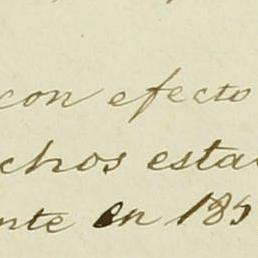 con efecto
chos esta
nte en 185